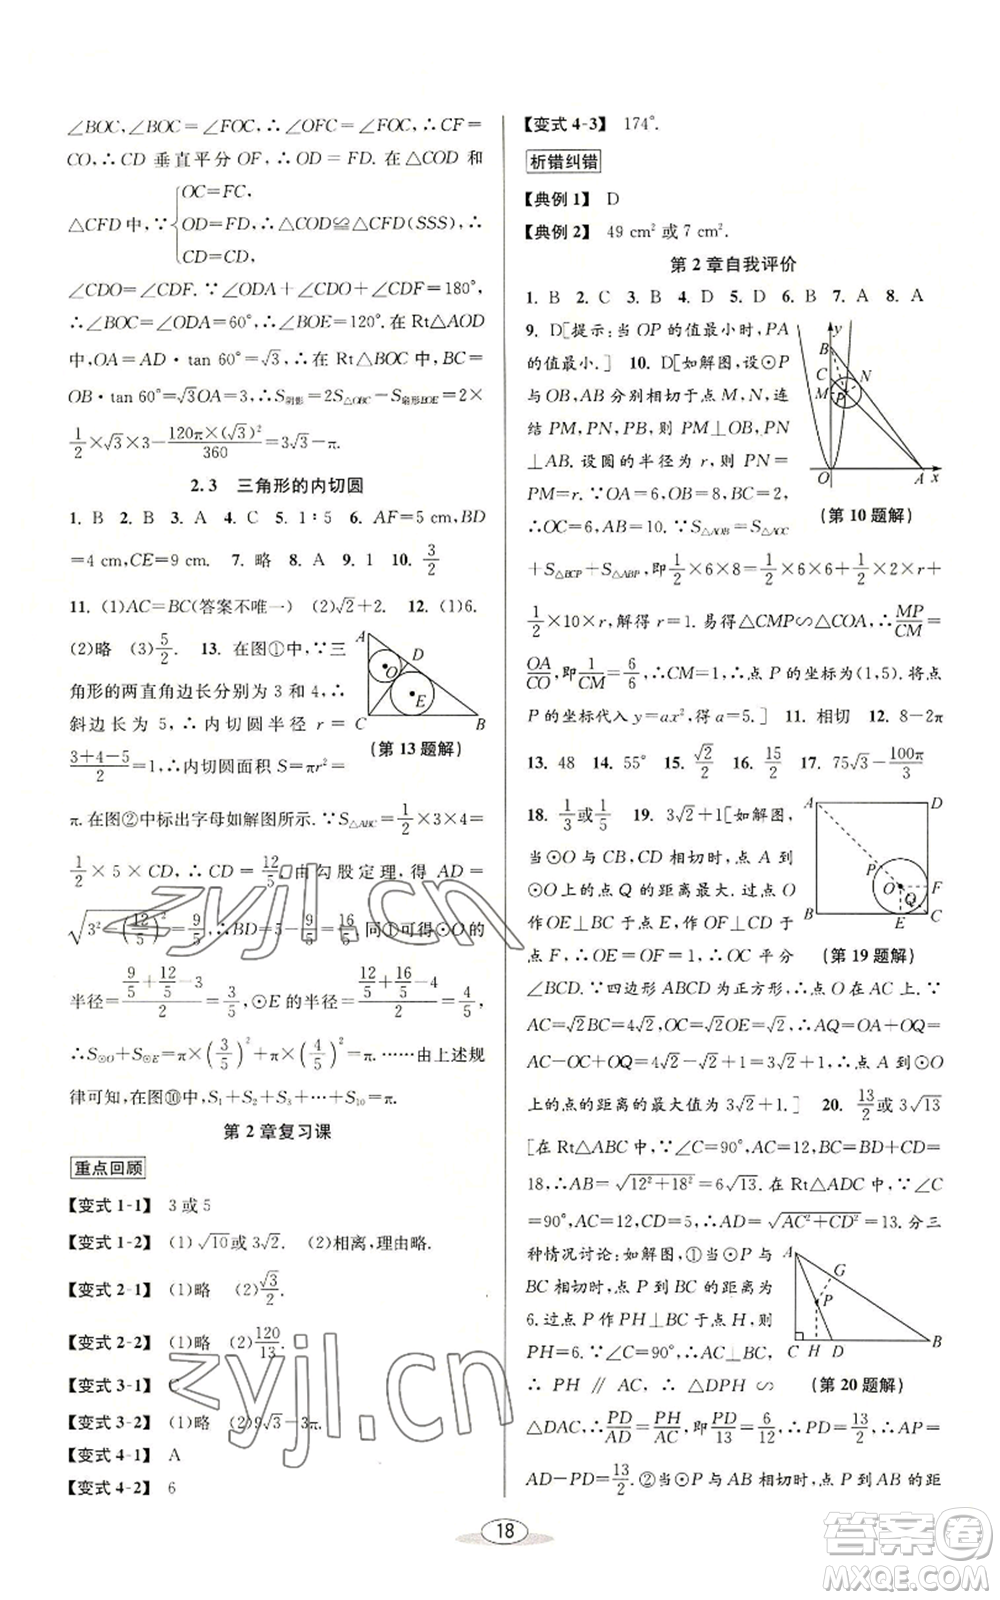 ∠BOC,∠BOC=∠FOC,∴∠OFC=∠FOC,∴CF=
CO,∴CD 垂直平分 OF,∴OD=FD. 在△COD 和
△CFD 中,∵{OC=FC,
OD=FD,∴△COD≌△CFD(SSS),∴
CD=CD
∠CDO=∠CDF.∵∠ODA+∠CDO+∠CDF=180°,
∴∠BOC=∠ODA=60°,∴∠BOE=120°.在 Rt△AOD
中,OA=AD·tan 60°=√3,∴在 Rt△BOC 中,BC=
OB·tan 60°=√3OA=3,∴S阴影=2S△OBC-S扇形BOE=2×
1/2×√3×3-120π×(√3)²/360=3√3-π.
2.3 三角形的内切圆
1. B 2. B 3. A 4. C 5. 1∶5 6. AF=5 cm,BD
=4 cm,CE=9 cm. 7. 略 8. A 9. 1 10. 3/2
11. (1)AC=BC(答案不唯一) (2)√2+2. 12. (1)6.
(2)略 (3)5/2. 13. 在图①中,∵三
角形的两直角边长分别为 3 和 4,∴
斜边长为 5,∴内切圆半径 r=
(3+4-5)/2=1,∴内切圆面积 S=πr²=
A D O E C B
(第 13 题解)
π.在图②中标出字母如解图所示.∵S△ABC=1/2×3×4=
1/2×5×CD,∴CD=12/5.由勾股定理,得 AD=
√(3²-(12/5)²)=9/5,∴BD=5-9/5=16/5.同①可得⊙O 的
半径=(9/5+12/5-3)/2=3/5,⊙E 的半径=(12/5+16/5-4)/2=4/5,
∴S⊙O+S⊙E=π×(3/5)²+π×(4/5)²=π.……由上述规
律可知,在图⑩中,S₁+S₂+…+S₁₀=π.
第 2 章复习课
重点回顾
【变式 1-1】 3 或 5
【变式 1-2】 (1)√10或 3√2. (2)相离,理由略.
【变式 2-1】 (1)略 (2)√3/2.
【变式 2-2】 (1)略 (2)120/13.
【变式 3-1】 C
【变式 3-2】 (1)略 (2)9√3-3π.
【变式 4-1】 A
【变式 4-2】 6
【变式 4-3】 174°.
析错纠错
【典例 1】 D
【典例 2】 49 cm² 或 7 cm².
第 2 章自我评价
1. B 2. C 3. B 4. D 5. D 6. B 7. A 8. A
9. D[提示:当 OP 的值最小时,PA
的值最小.] 10. D[如解图,设⊙P
与 OB,AB 分别相切于点 M,N,连
结 PM,PN,则 PM⊥OB,PN
⊥AB. 设圆的半径为 r,则 PN=
PM=r.∵OA=6,AB=10.
y B C M P N O A x
(第 10 题解)
∴OC=6,AB=10.∵S△AOB=S△AOC
+S△BCP+S△ABP,即1/2×6×8=1/2×6×6+1/2×2×r+
1/2×10×r,解得 r=1.易得△CMP∽△COA,∴MP/CM=
OA/CO,即1/CM=6/6,∴CM=1,∴点 P 的坐标为(1,5).将点
P 的坐标代入 y=ax²,得 a=5.] 11. 相切 12. 8-2π
13. 48 14. 55° 15. √2/2 16. 15/2 17. 75√3-100π/3
18. 1/3或1/5 19. 3√2+1[如解图,
当⊙O 与 CB,CD 相切时,点 A 到
⊙O 上的点 Q 的距离最大.过点 O
作 OE⊥BC 于点 E,OF⊥CD 于
点 F,∴OE=OF=1,∴OC 平分
A D P O F Q B E C
(第 19 题解)
∠BCD.∵四边形 ABCD 为正方形,∴点 O 在 AC 上.∵
AC=√2BC=4√2,OC=√2OE=√2,∴AQ=OA+OQ=
AC-OC+OQ=4√2-√2+1=3√2+1,∴点 A 到⊙O
上的点的距离的最大值为 3√2+1.] 20. 13/2或 3√13
[在 Rt△ABC 中,∵∠C=90°,AC=12,BC=BD+CD=
18,∴AB=√(12²+18²)=6√13.在 Rt△ADC 中,∵∠C
=90°,AC=12,CD=5,∴AD=√(AC²+CD²)=13.分三
种情况讨论:如解图,①当⊙P 与
BC 相切时,点 P 到 BC 的距离为
6.过点 P 作 PH⊥BC 于点 H,则
PH=6.∵∠C=90°,∴AC⊥BC,
∴PH∥AC,∴△DPH∽
A G P C H D B
(第 20 题解)
△DAC,∴PD/AD=PH/AC=PD/13=6/12,∴PD=13/2,∴AP=
AD-PD=13/2.②当⊙P 与 AB 相切时,点 P 到 AB 的距
18
zyjl.cn
zyjl.cn
答案卷
MXQE.COM